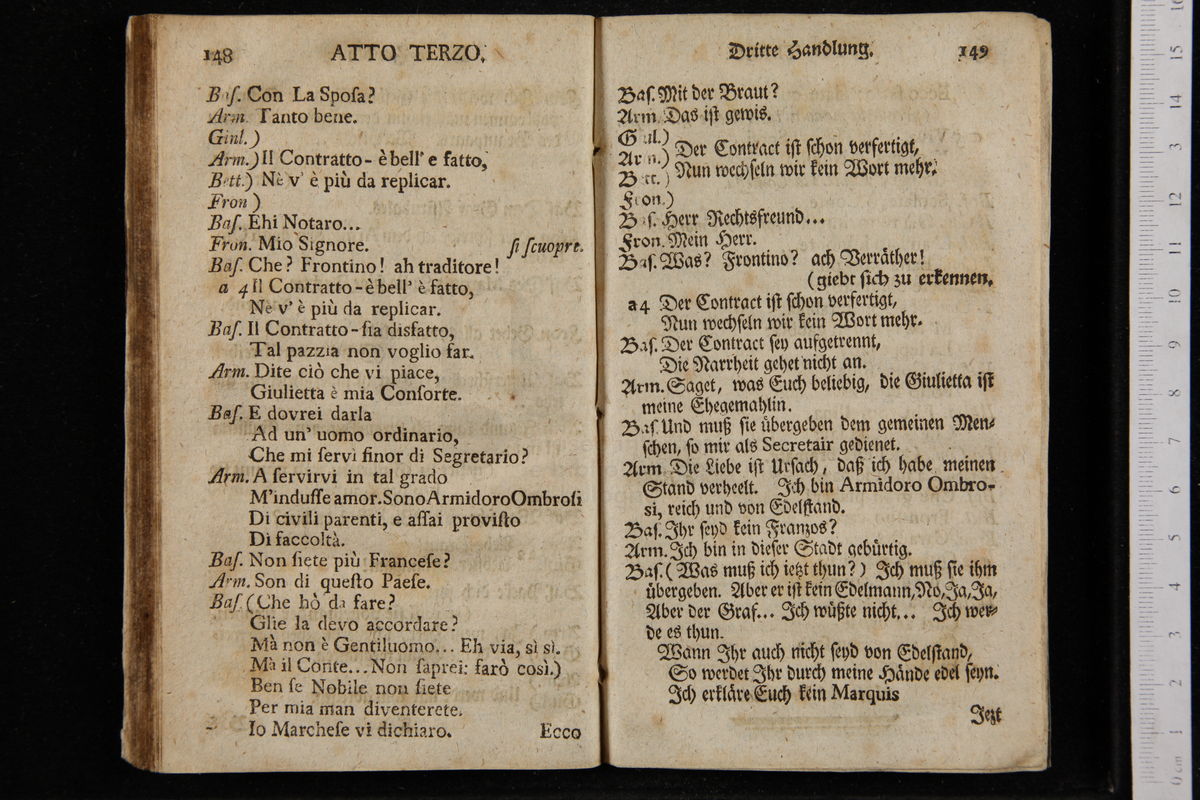 148 ATTO TERZO.
Baſ. Con La Spoſa?
Arm. Tanto bene.
Giul.)
Arm.) Il Contratto - è bell' e fatto,
Bett.) Nè v' è più da replicar.
Fron )
Baſ. Ehi Notaro...
Fron. Mio Signore. ſi ſcuopre.
Baſ. Che? Frontino! ah traditore!
a 4 Il Contratto - è bell' è fatto,
Ne v' è più da replicar.
Baſ. Il Contratto - ſia disfatto,
Tal pazzia non voglio far.
Arm. Dite ciò che vi piace,
Giulietta è mia Conſorte.
Baſ. E dovrei darla
Ad un' uomo ordinario,
Che mi ſervì finor di Segretario?
Arm. A ſervirvi in tal grado
M'induſſe amor. Sono Armidoro Ombroſi
Di civili parenti, e aſſai proviſto
Di faccoltà.
Baſ. Non ſiete più Franceſe?
Arm. Son di queſto Paeſe.
Baſ. (Che hò da fare?
Glie la devo accordare?
Mà non è Gentiluomo... Eh via, sì sì.
Mà il Conte... Non ſaprei: farò così.)
Ben ſe Nobile non ſiete
Per mia man diventerete.
Io Marcheſe vi dichiaro.
Ecco
Dritte Handlung. 149
Baſ. Mit der Braut?
Arm. Das iſt gewis.
Giul.)
Arm.) Der Contract iſt ſchon verfertigt,
Bett.) Nun wechſeln wir kein Wort mehr.
Fron.)
Baſ. Herr Rechtsfreund...
Fron. Mein Herr.
Baſ. Was? Frontino? ach Verräther!
(giebt ſich zu erkennen.
a 4 Der Contract iſt ſchon verfertigt,
Nun wechſeln wir kein Wort mehr.
Baſ. Der Contract ſey aufgetrennt,
Die Narrheit gehet nicht an.
Arm. Saget, was Euch beliebig, die Giulietta iſt
meine Ehegemahlin.
Baſ. Und muß ſie übergeben dem gemeinen Men⸗
ſchen, ſo mir als Secretair gedienet.
Arm. Die Liebe iſt Urſach, daß ich habe meinen
Stand verheelt. Ich bin Armidoro Ombro-
si, reich und von Edelſtand.
Baſ. Ihr ſeyd kein Franzos?
Arm. Ich bin in dieſer Stadt gebürtig.
Baſ. (Was muß ich ietzt thun?) Ich muß ſie ihm
übergeben. Aber er iſt kein Edelmann, No, Ja, Ja,
Aber der Graf... Ich wüßte nicht... Ich wer⸗
de es thun.
Wann Ihr auch nicht ſeyd von Edelſtand,
So werdet Ihr durch meine Hände edel ſeyn.
Ich erkläre Euch kein Marquis
Jezt